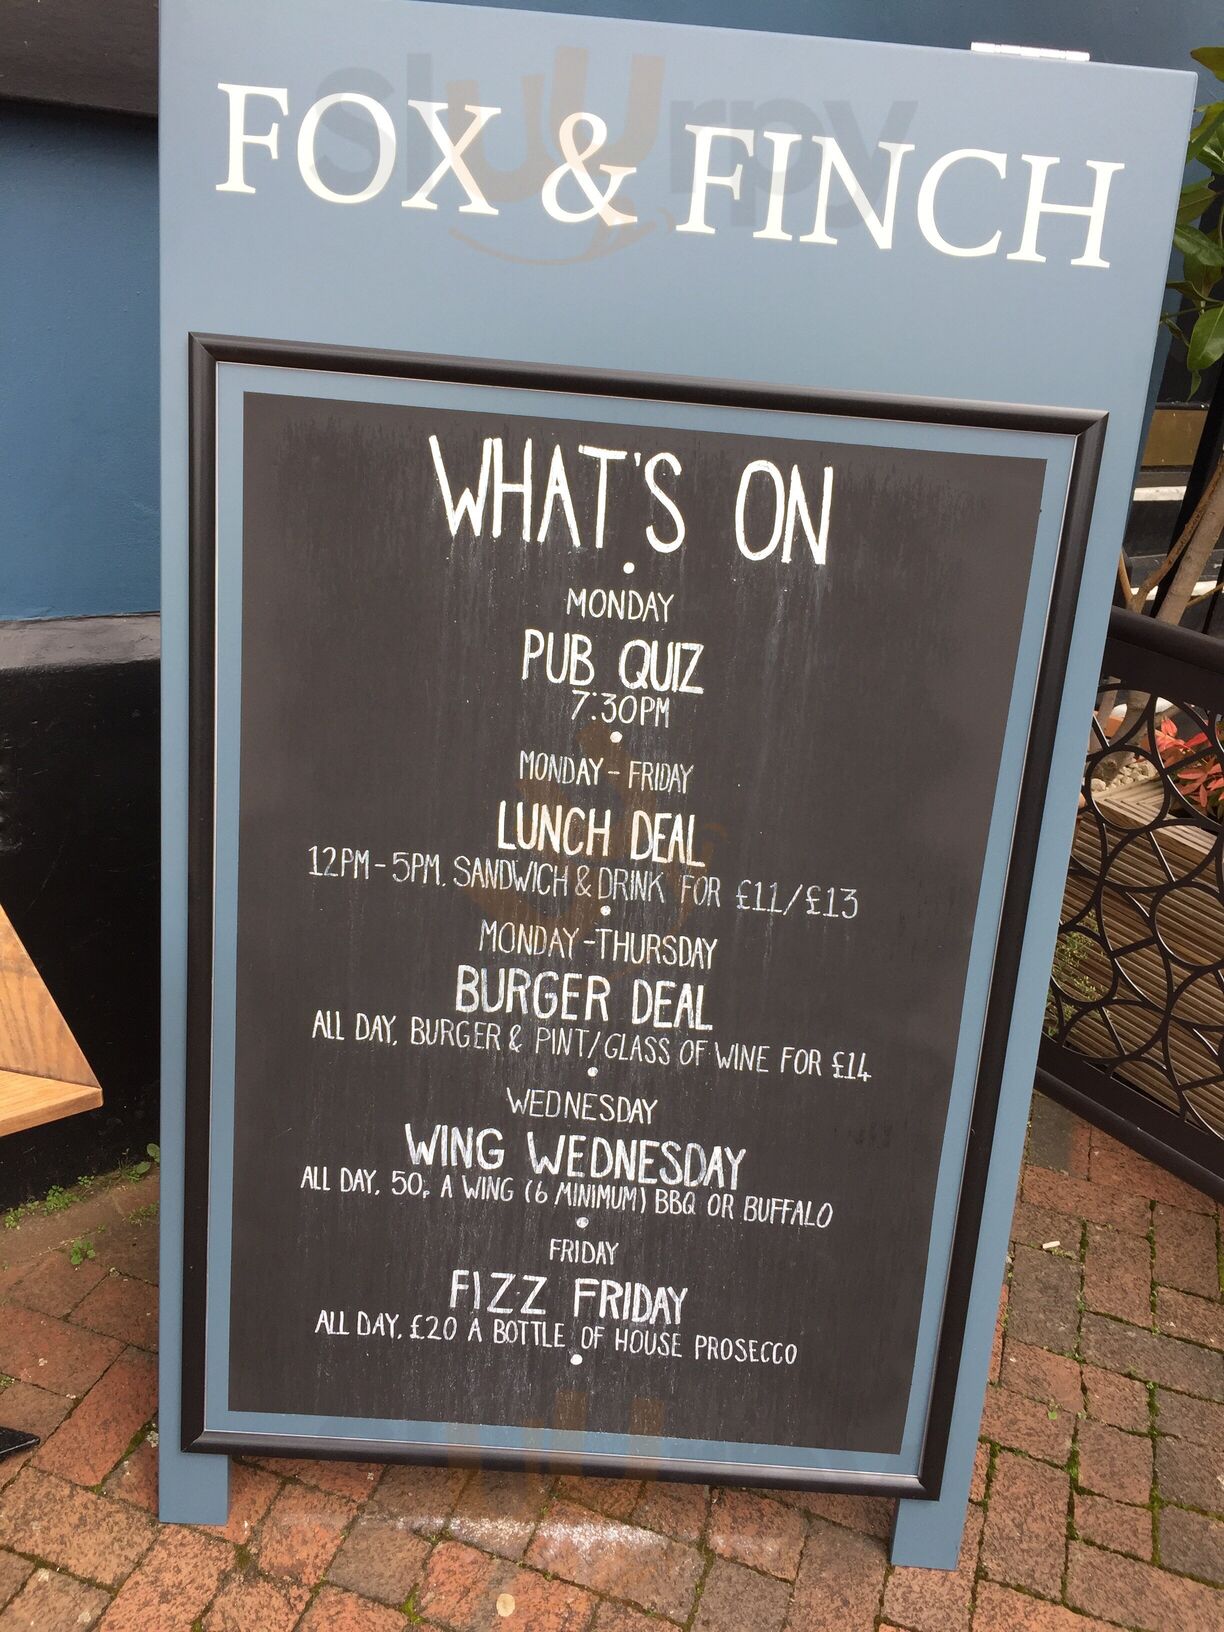 FOX & FINCH
Slurrpy
WHAT'S ON
MONDAY
PUB QUIZ
7:30PM
MONDAY - FRIDAY
LUNCH DEAL
12PM - 5PM. SANDWICH & DRINK FOR £11/£13
MONDAY - THURSDAY
BURGER DEAL
ALL DAY, BURGER & PINT/GLASS OF WINE FOR £14
WEDNESDAY
WING WEDNESDAY
ALL DAY, 50P A WING (6 MINIMUM) BBQ OR BUFFALO
FRIDAY
FIZZ FRIDAY
ALL DAY, £20 A BOTTLE OF HOUSE PROSECCO